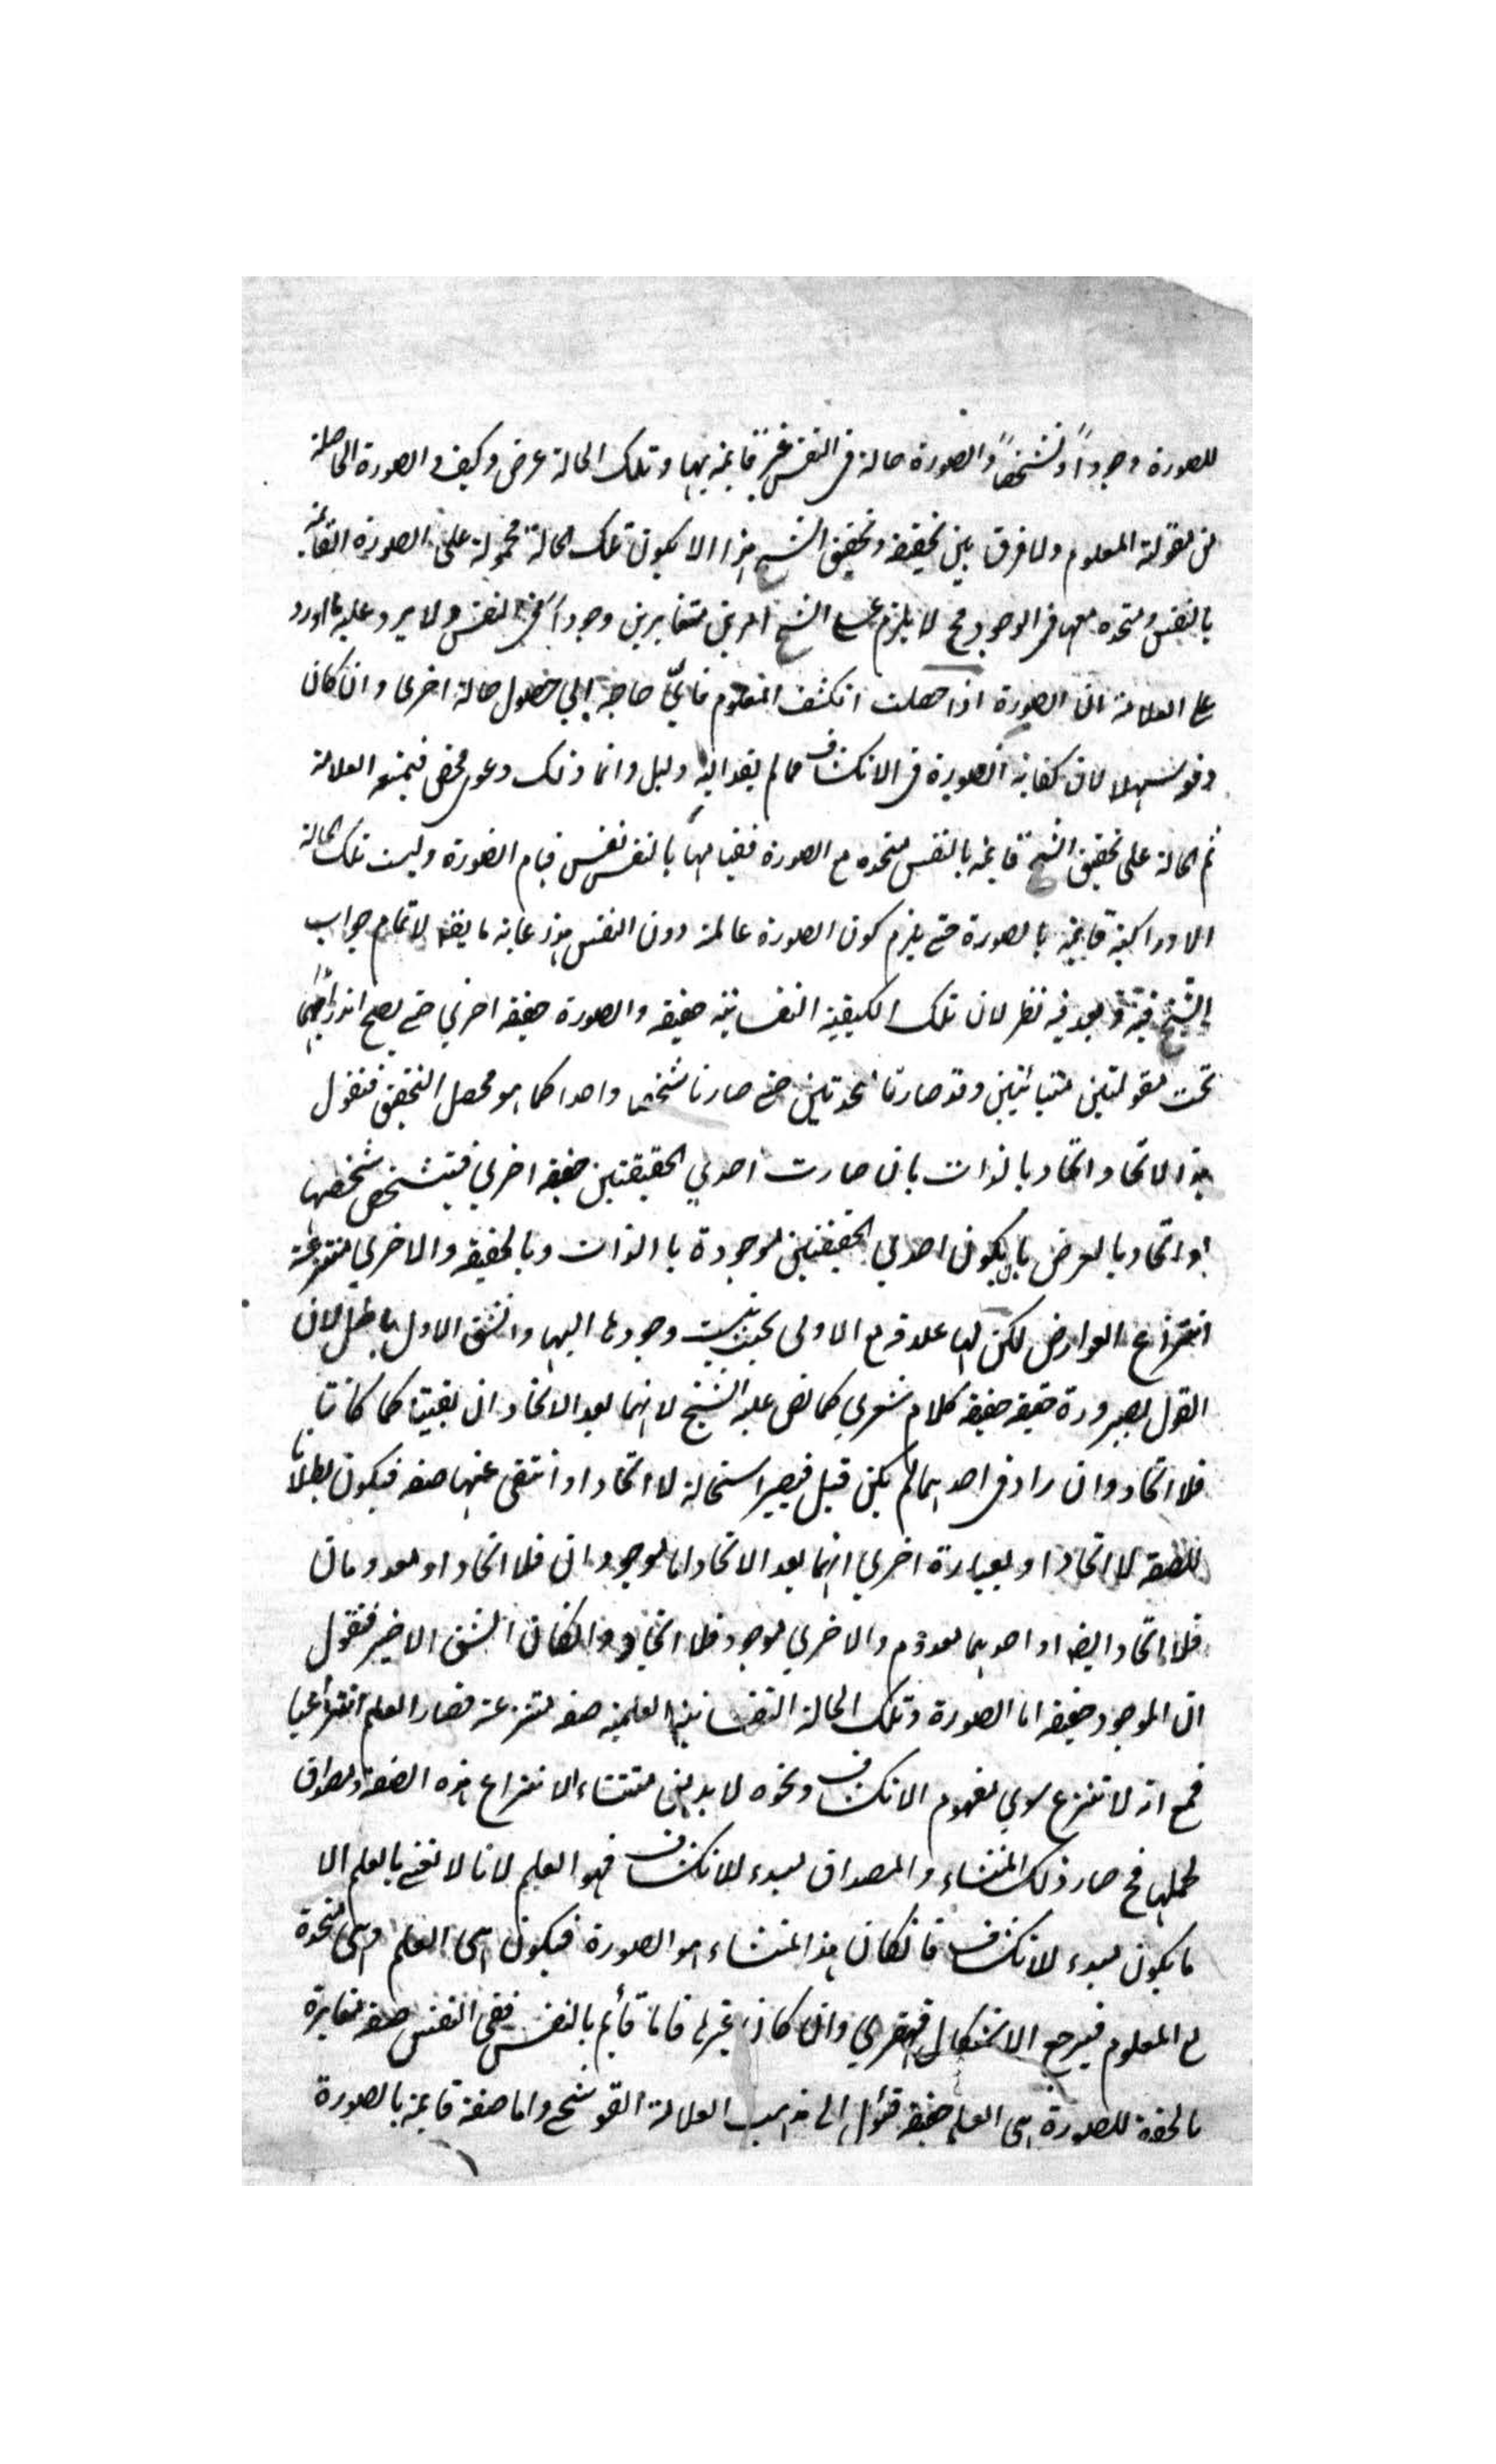 للصورة وجوداً وتشخصاً والصورة حالة فى النفس غير قايمة بها وتلك الحالة عرض وكيف والصورة الحاصلة
من مقولة المعلوم ولا فرق بين تحقيقه وتحقيق الشيخ هذا الا بكون تلك الحالة محمولة على الصورة القائمة
بالنفس ومتحدة معها فى الوجود فح لا يلزم على الشيخ امرين متغايرين وجوداً فى النفس ولا يرد عليه ما اورد
على العلامة ان الصورة اذا حصلت انكشف المعلوم فاىّ حاجة الي حصول حالة اخرى وان كان
دفعه سهلا لان كفاية الصورة فى الانكشاف مما لم يقد اليه دليل وانما ذلك دعوى محض فيمنعه العلامة
ثم الحالة على تحقيق الشيخ قايمة بالنفس متحدة مع الصورة فقيامها بالنفس نفس قيام الصورة وليست تلك الحالة
الادراكية قايمة بالصورة حتى يلزم كون الصورة عالمة دون النفس هذا غاية ما يقال لاتمام جواب
الشيخ فيه وبعد فيه نظر لان تلك الكيفية النفسانية حقيقة والصورة حقيقة اخري حتى يصح اندراجهما
تحت مقولتين متباينتين وقد صارتا متحدتين حتى صارتا شخصا واحدا كما هو محصل التحقيق فنقول
هذا الاتحاد اتحاد بالذات بان صارت احدي الحقيقتين حقيقة اخري فيتشخص شخصها
او اتحاد بالعرض بان يكون احدي الحقيقتين موجودة باالذات وبالحقيقة والاخري منتزعة
انتزاع العوارض لكن لها علاقة مع الاولى بحيث ينسب وجودها اليها والشق الاول باطل لان
القول بصيرورة حقيقة حقيقة كلام شعري كما نص عليه الشيخ لانهما بعد الاتحاد ان بقيتا كما كانتا
فلا اتحاد وان زاد فى احدهما لم يكن قبل فيصير استحالة لا اتحادا او انتفى عنها صفة فيكون بطلانا
للصفة لا اتحادا او بعبارة اخري انهما بعد الاتحاد اما موجودان فلا اتحاد او معدومان
فلا اتحاد ايضا او احدهما معدوم والاخري موجود فلا اتحاد وانكان الشق الاخير فنقول
ان الموجود حقيقة اما الصورة وتلك الحالة النفسانية العلمية صفة منتزعة فصار العلم انتزاعيا
فمع انه لا تنزع لاي مفهوم الانكشاف ونحوه لا بد من منشاء لانتزاع هذه الصفة ومصداق
لحملها فح صار ذلك المنشاء والمصداق مبدء للانكشاف فهو العلم لانا لا نعنى بالعلم الا
ما يكون مبدء للانكشاف فانكان هذا المنشاء هو الصورة فيكون هى العلم وهى متحدة
مع المعلوم فيرجع الاشكال قهقري وان كان غيرها فاما قائم بالنفس ففى النفس صفة مغايرة
بالحقيقة للصورة هى العلم حقيقة فيؤل الى مذهب العلامة القوشجى واما صفة قايمة بالصورة